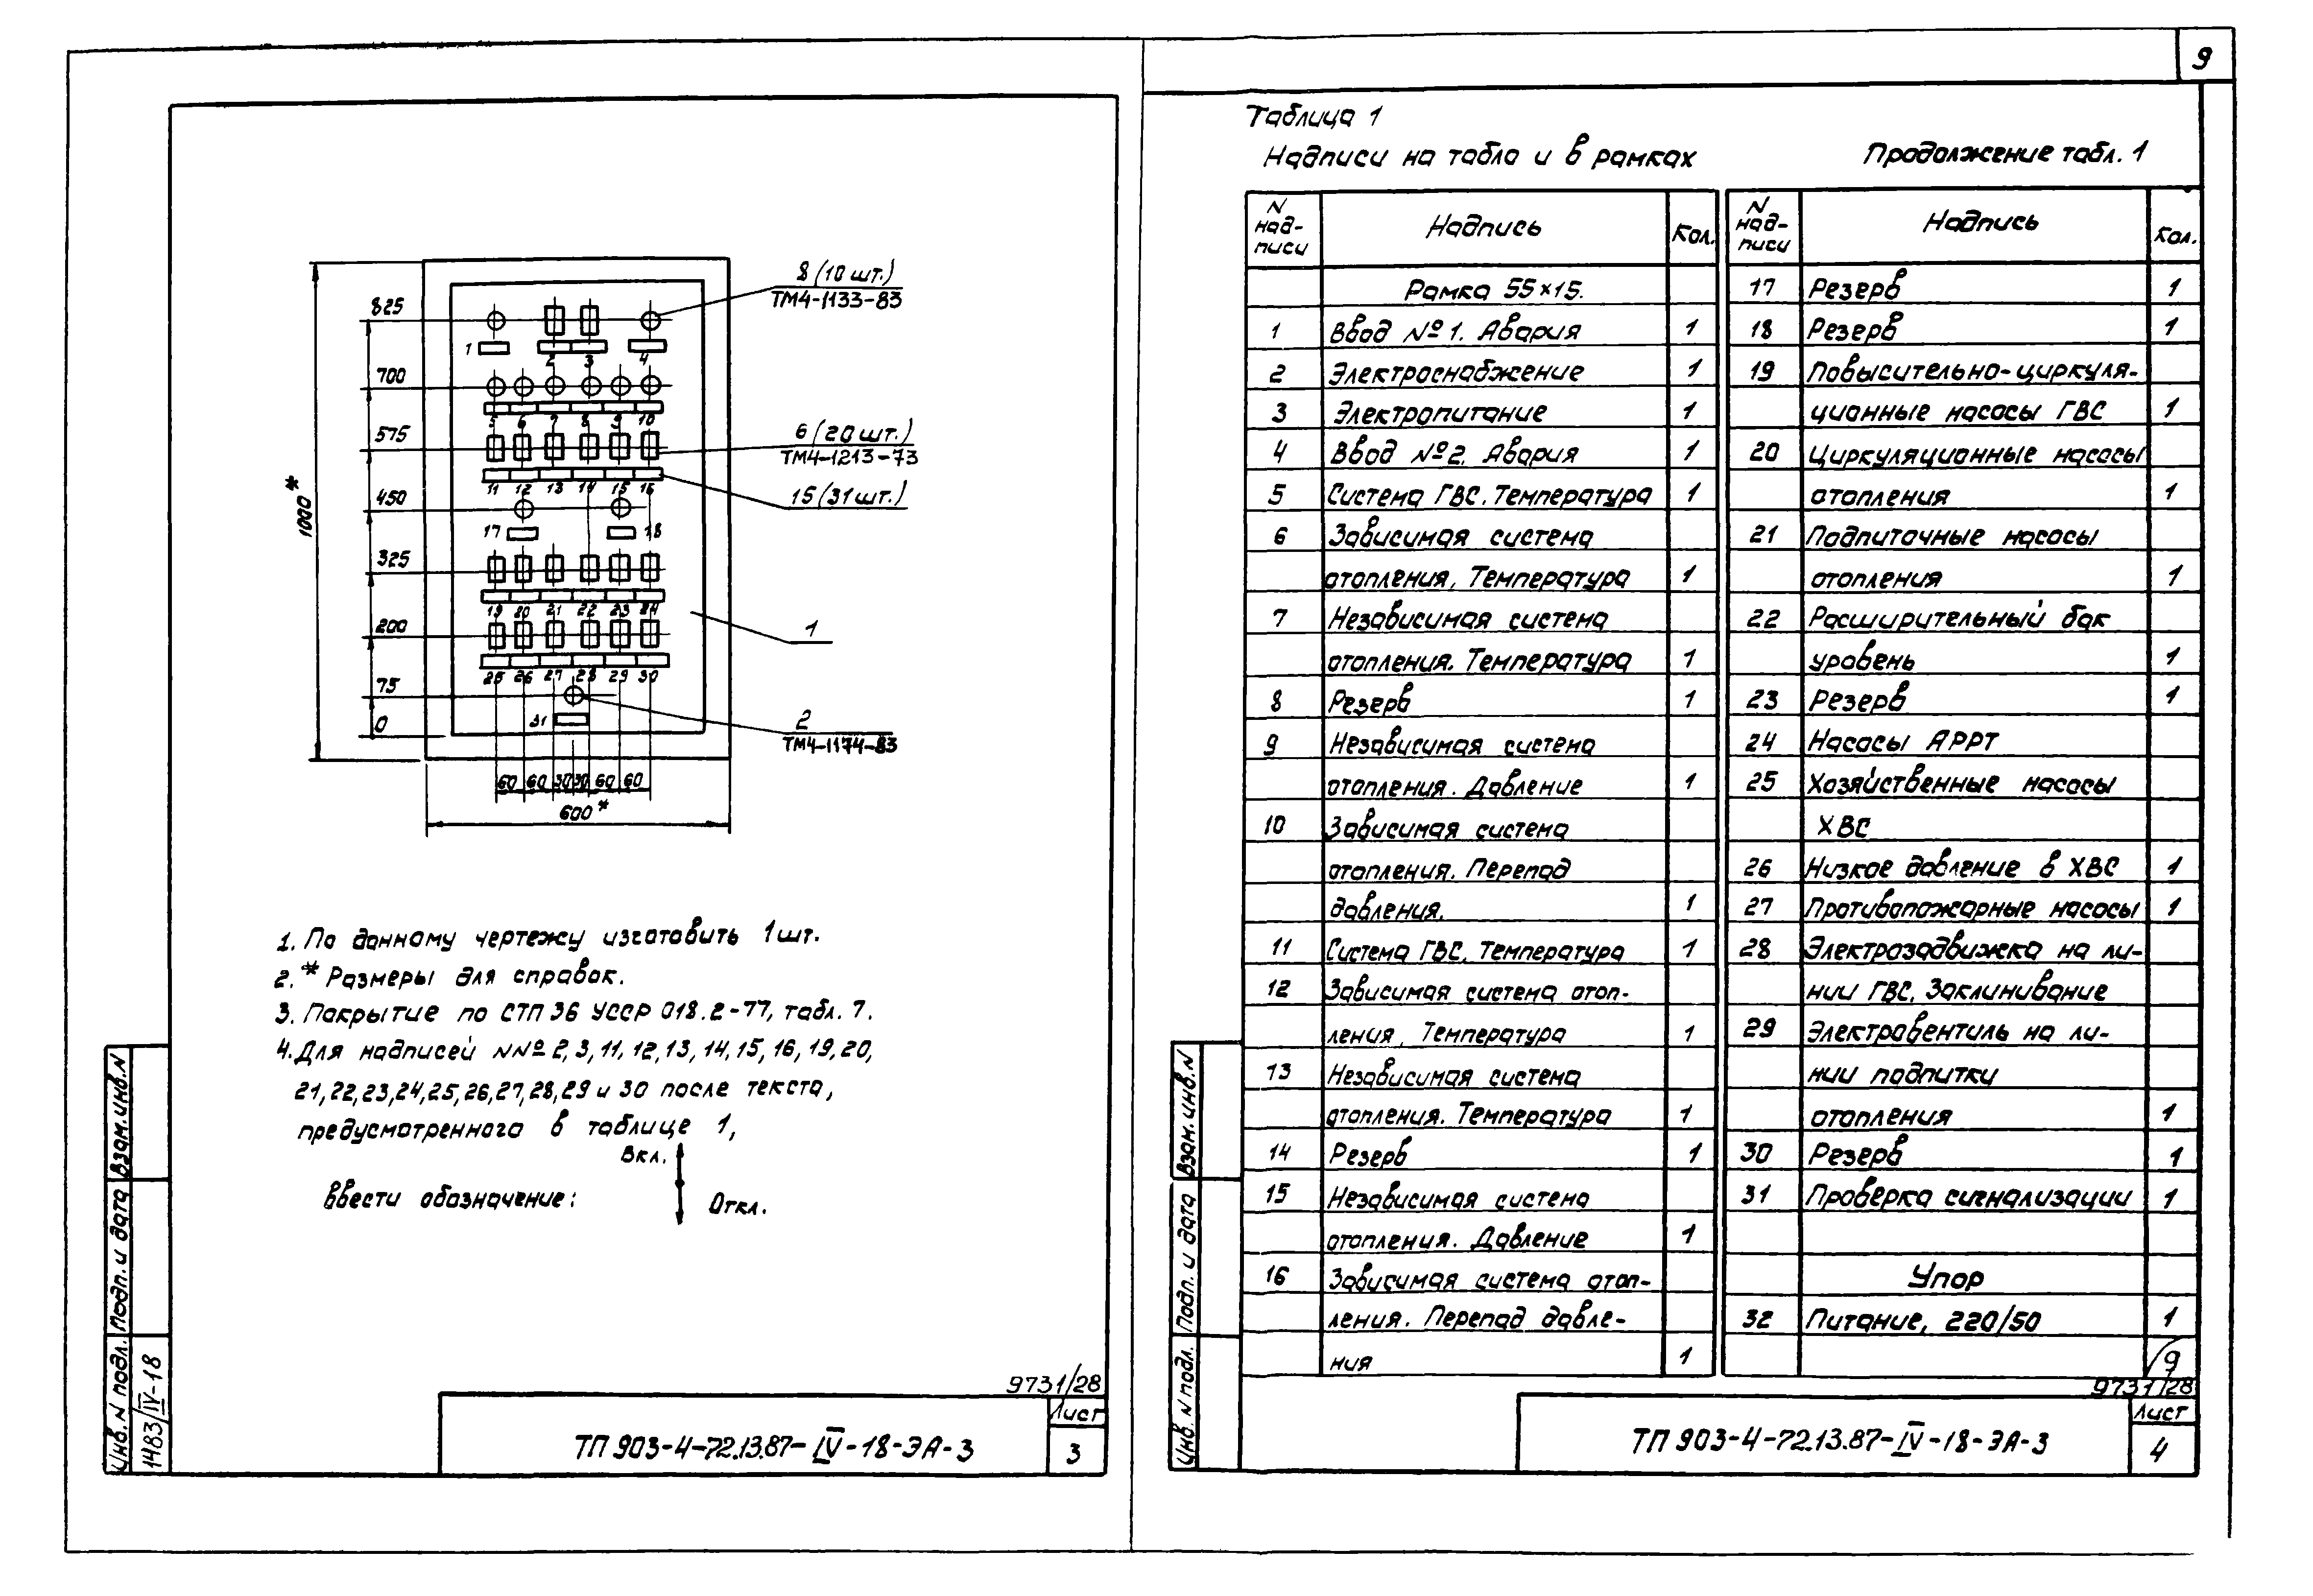 9
8 (10 шт.)
ТМ4-1133-83
825
1
2
3
4
700
5 6 7 8 9 10
6 (20 шт.)
ТМ4-1213-73
575
11 12 13 14 15 16
15 (31 шт.)
450
1000*
17
18
325
19 20 21 22 23 24
1
200
25 26 27 28 29 30
75
31
2
ТМ4-1174-83
0
60 60 30 30 60 60
600*
1. По данному чертежу изготовить 1 шт.
2. * Размеры для справок.
3. Покрытие по СТП 36 УССР 018.2-77, табл. 7.
4. Для надписей NNº 2, 3, 11, 12, 13, 14, 15, 16, 19, 20,
21, 22, 23, 24, 25, 26, 27, 28, 29 и 30 после текста,
предусмотренного в таблице 1,
Вкл.
ввести обозначение:
Откл.
Взам. инв. N
Подп. и дата
Инв. N подл.
1483/IV-18
9731/28
ТП 903-4-72.13.87-IV-18-ЭА-3
Лист
3
Таблица 1
Надписи на табло и в рамках
N надписи Надпись Кол.
Рамка 55×15.
1 Ввод Nº 1. Авария 1
2 Электроснабжение 1
3 Электропитание 1
4 Ввод Nº 2. Авария 1
5 Система ГВС. Температура 1
6 Зависимая система
отопления, Температура 1
7 Независимая система
отопления. Температура 1
8 Резерв 1
9 Независимая система
отопления. Давление 1
10 Зависимая система
отопления. Перепад
давления. 1
11 Система ГВС, Температура 1
12 Зависимая система отоп-
ления, Температура 1
13 Независимая система
отопления. Температура 1
14 Резерв 1
15 Независимая система
отопления. Давление 1
16 Зависимая система отоп-
ления. Перепад давле-
ния 1
Продолжение табл. 1
N над-
писи Надпись Кол.
17 Резерв 1
18 Резерв 1
19 Повысительно-циркуля-
ционные насосы ГВС 1
20 Циркуляционные насосы
отопления 1
21 Подпиточные насосы
отопления 1
22 Расширительный бак
уровень 1
23 Резерв 1
24 Насосы АРРТ
25 Хозяйственные насосы
ХВС
26 Низкое давление в ХВС 1
27 Противопожарные насосы 1
28 Электрозадвижка на ли-
нии ГВС. Заклинивание
29 Электровентиль на ли-
нии подпитки
отопления 1
30 Резерв 1
31 Проверка сигнализации 1
Упор
32 Питание, 220/50 1
9
9731/28
Взам. инв. N
Подп. и дата
Инв. N подл.
ТП 903-4-72.13.87-IV-18-ЭА-3
Лист
4